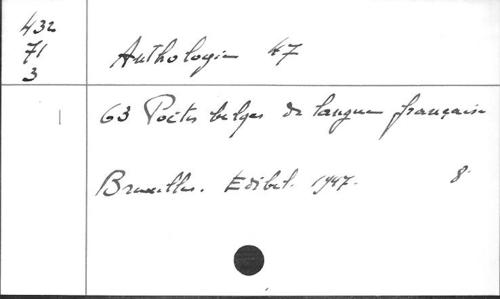 432
71
3
Anthologie 47
63 Poètes belges de langue française
Bruxelles. Edibel. 1947. 8